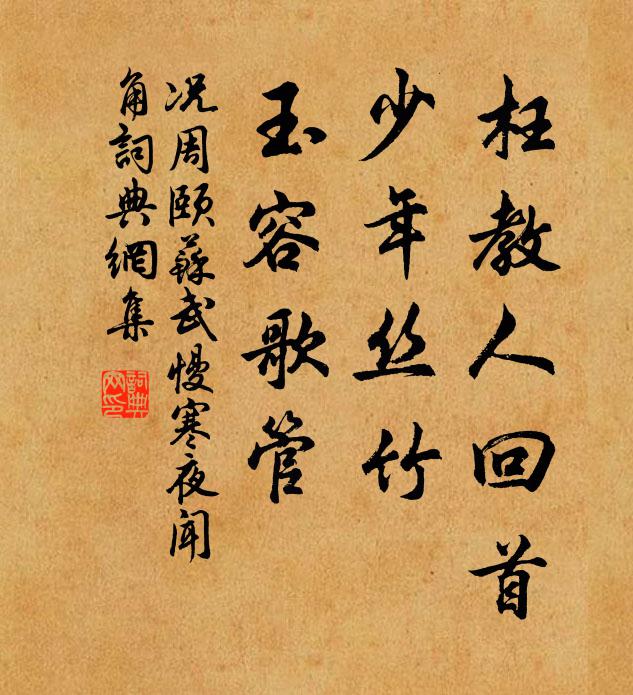 枉教人回首
少年丝竹
玉容歌管
况周颐蘇武慢寒夜聞
角詞典網集
詞典
网印